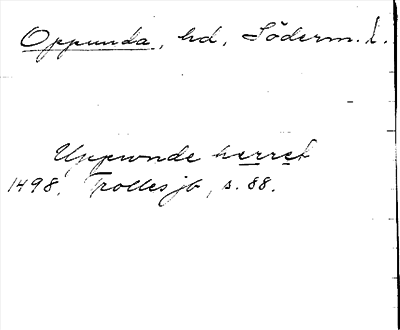 Oppunda, hd, Söderm. l.
Uppwnde herret
1498, Trolles jb, s. 88.